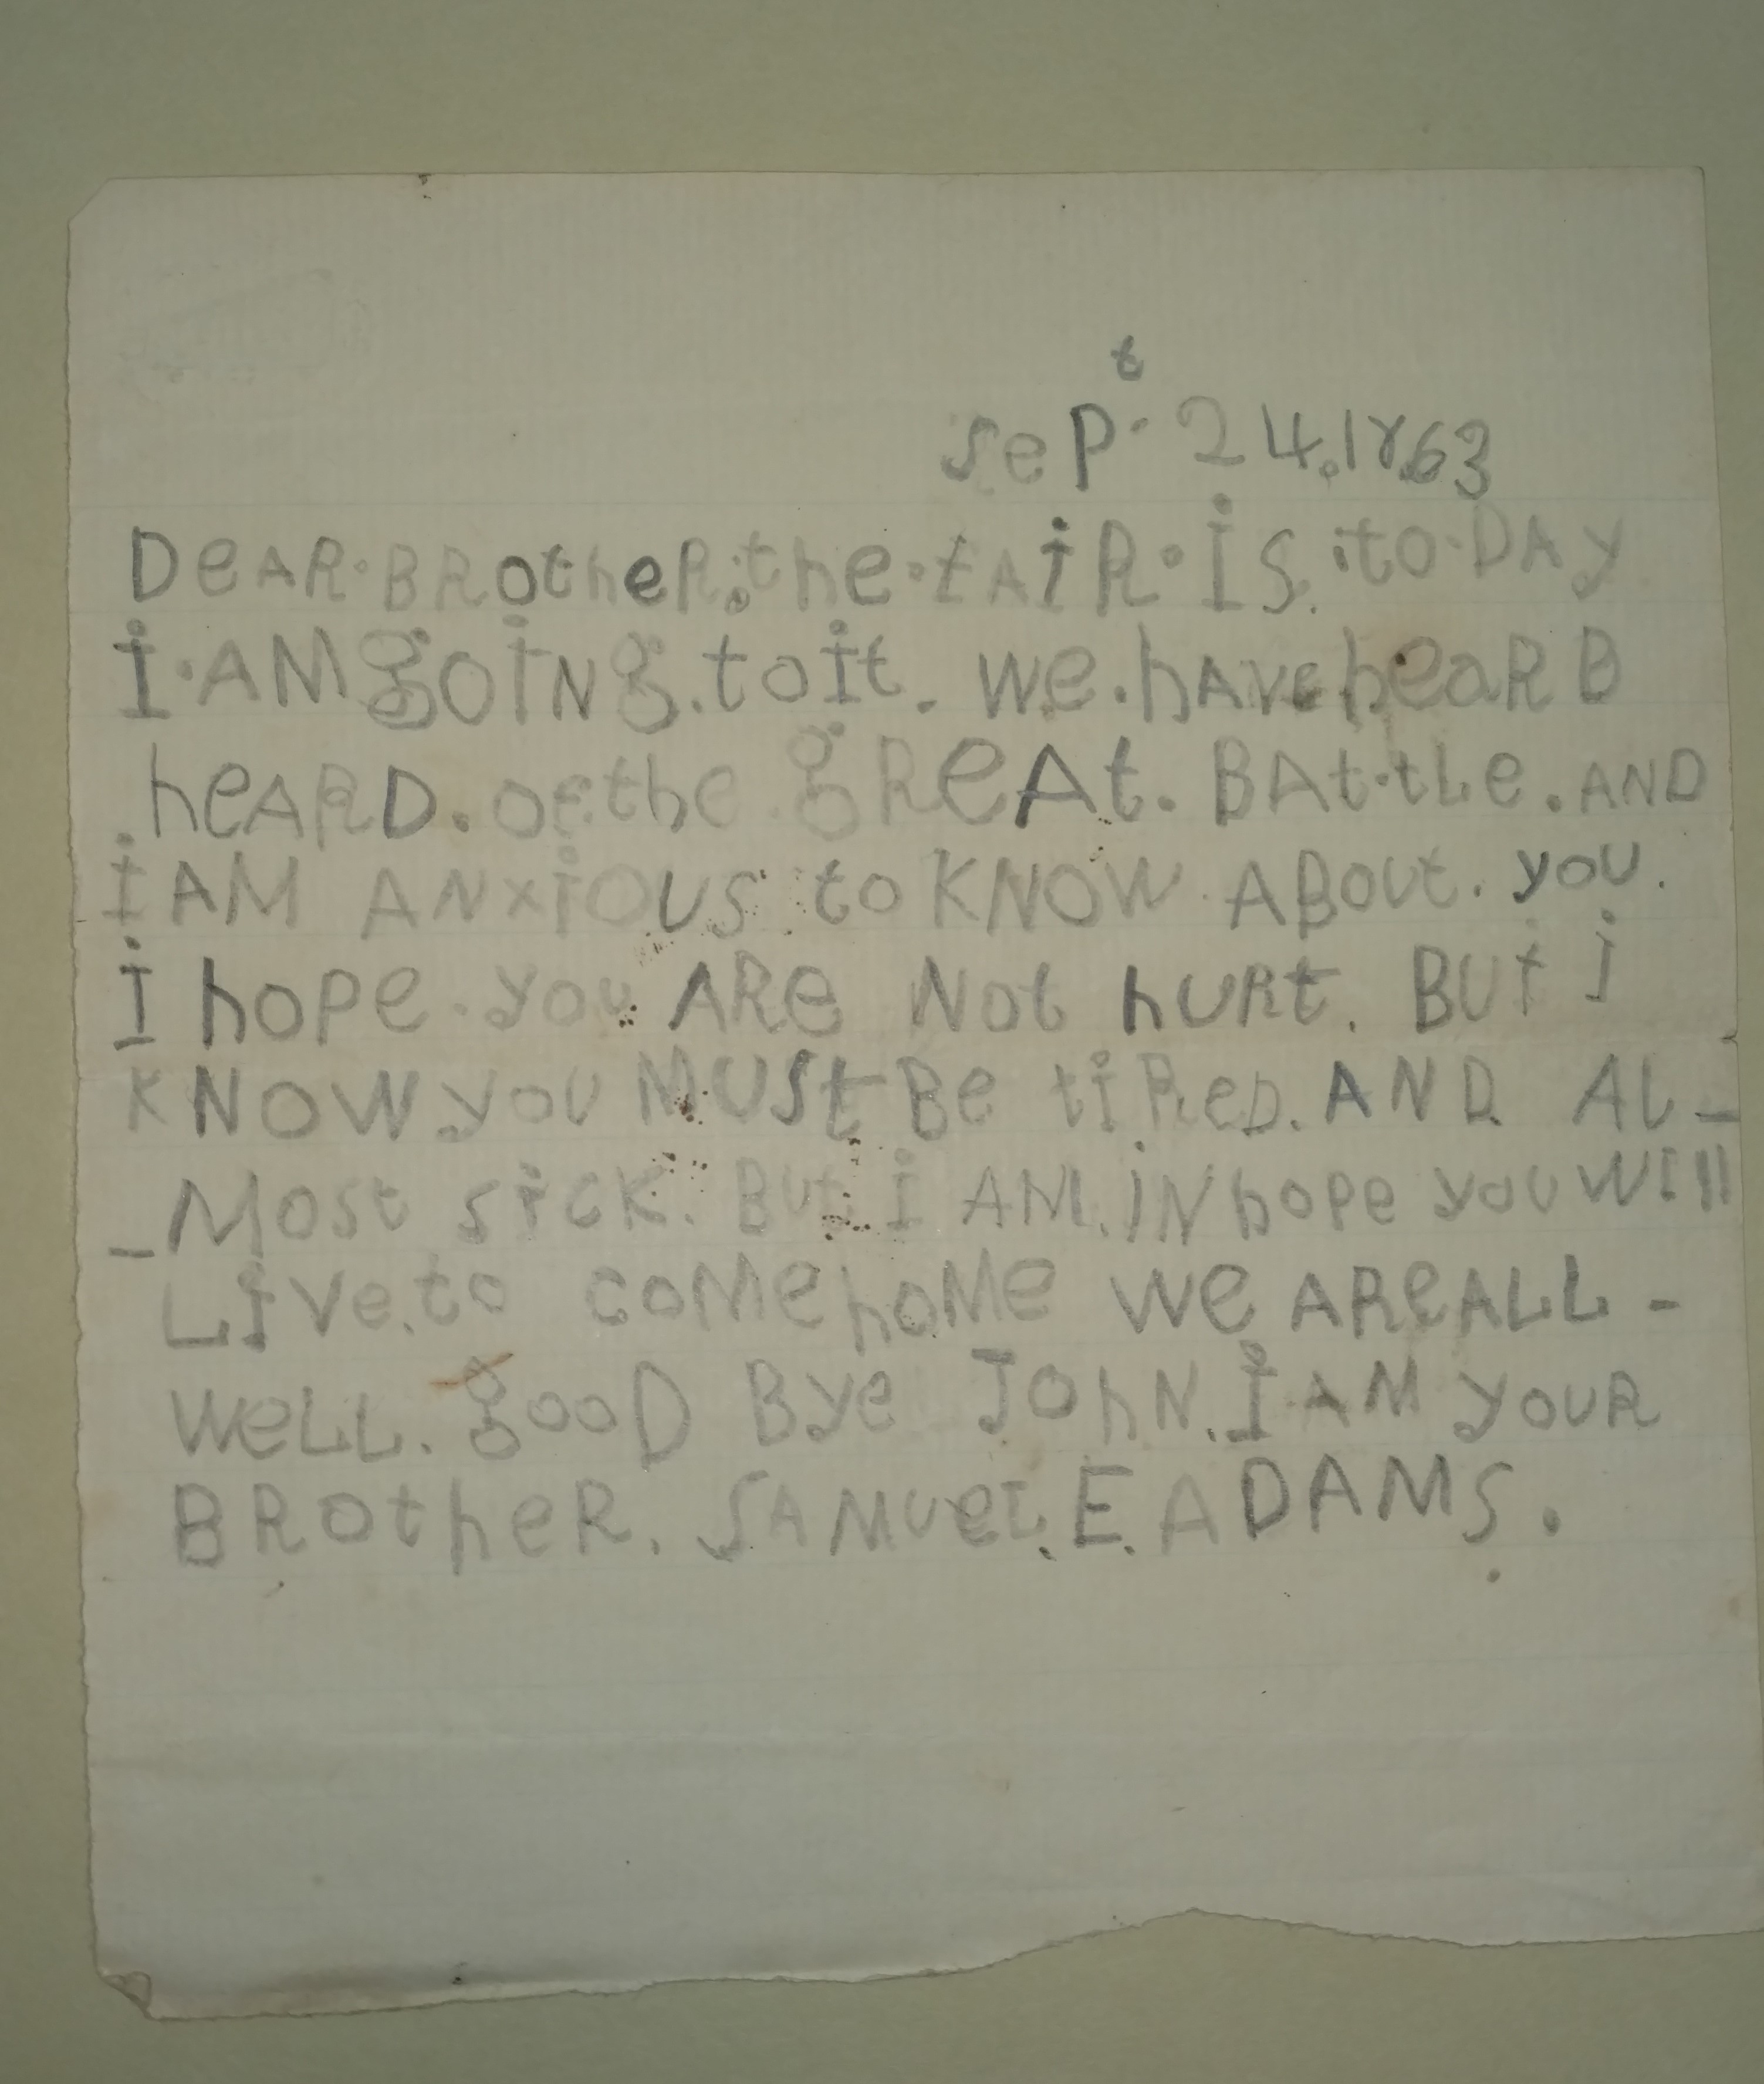 sePt. 24.1863
DeAR.BRotheR.the.fAiR.is.to.DAy
i.AM goiNg.to it. we.hAve heaRB
.heARD.of.the.gReAt.BAt.tLe.AND
i AM ANxioUS to KNOW ABout.you.
i hope.you ARe Not hURt. BUt i
KNOW you MUSt Be tiReD.AND AL-
-Most sicK. But i AM.iN hope you Will
Live.to coMe hoMe we ARe ALL-
weLL. gooD Bye JohN.i AM youR
BRotheR. SAMueL.E.ADAMS.